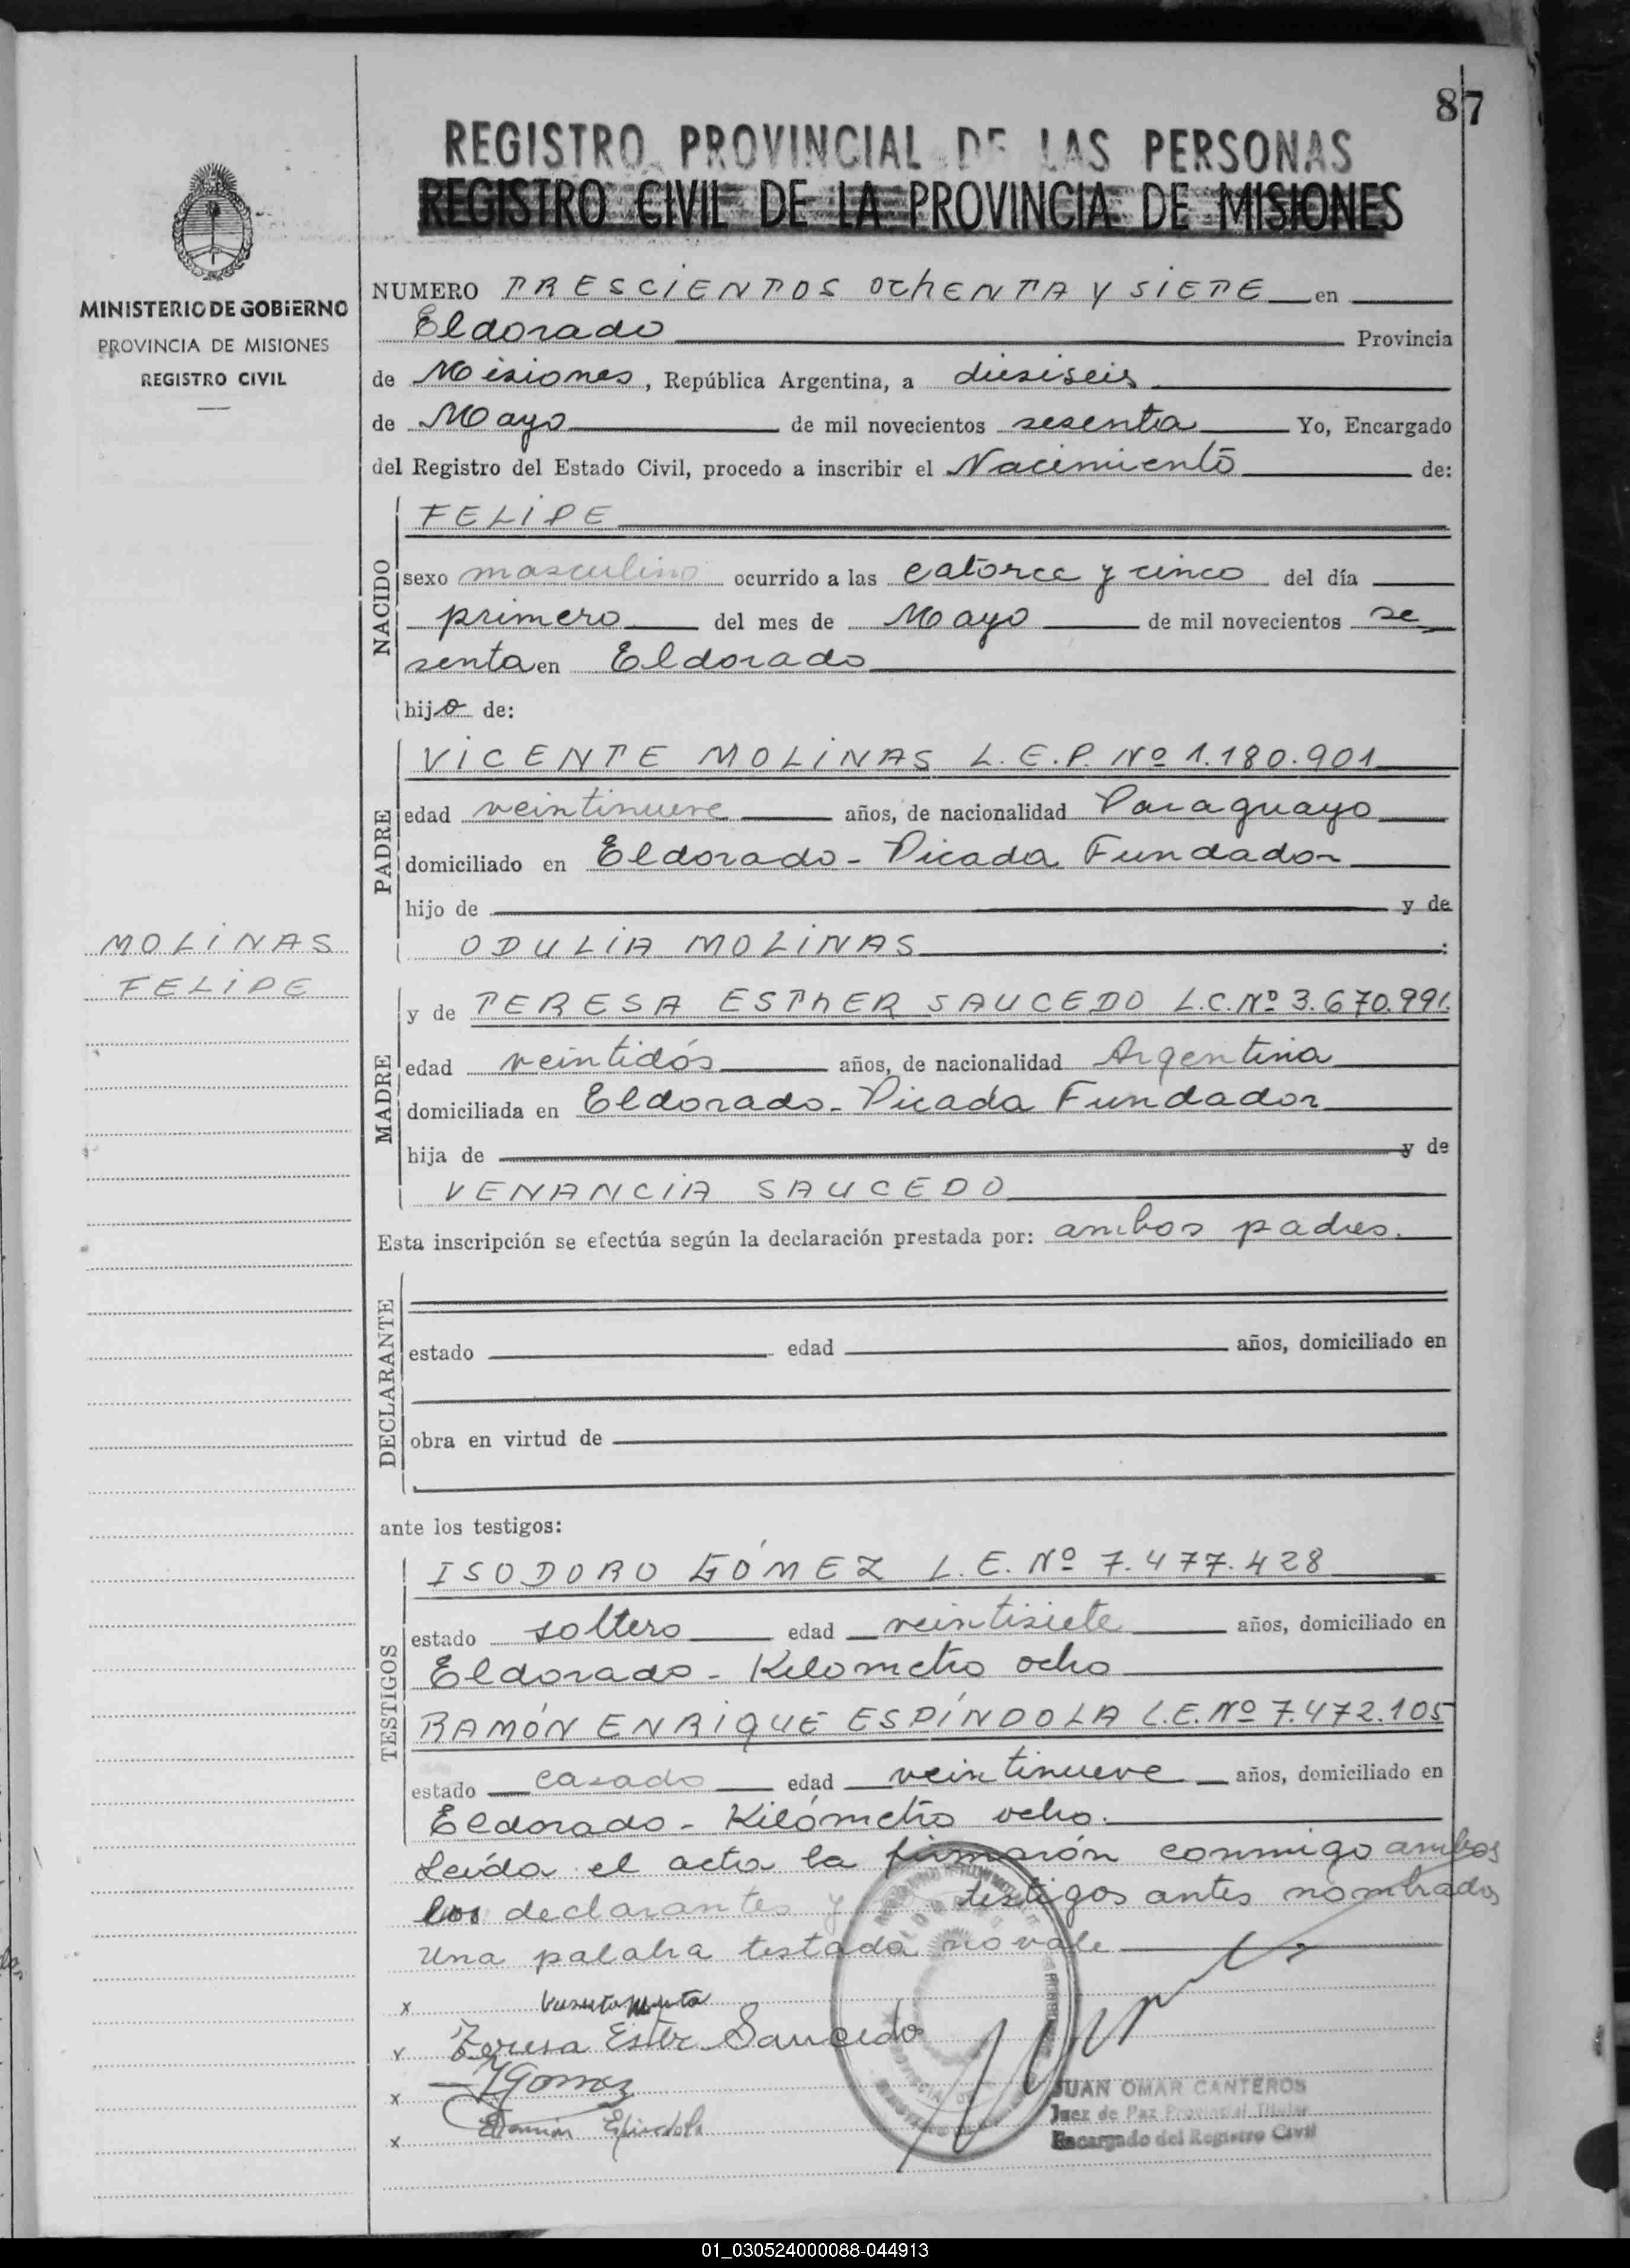 87
REGISTRO PROVINCIAL DE LAS PERSONAS
REGISTRO CIVIL DE LA PROVINCIA DE MISIONES
MINISTERIO DE GOBIERNO
PROVINCIA DE MISIONES
REGISTRO CIVIL
NUMERO TRESCIENTOS OCHENTA Y SIETE en
Eldorado Provincia
de Misiones, República Argentina, a diesiseis
de Mayo de mil novecientos sesenta Yo, Encargado
del Registro del Estado Civil, procedo a inscribir el Nacimiento de:
NACIDO
FELIPE
sexo masculino ocurrido a las catorce y cinco del día
primero del mes de Mayo de mil novecientos se
senta en Eldorado
hijo de:
PADRE
VICENTE MOLINAS L.E.P. Nº 1.180.901
edad veintinueve años, de nacionalidad Paraguayo
domiciliado en Eldorado - Picada Fundador
hijo de y de
ODULIA MOLINAS :
MOLINAS
FELIPE
MADRE
y de TERESA ESTHER SAUCEDO L.C. Nº 3.670.991.
edad veintidós años, de nacionalidad Argentina
domiciliada en Eldorado - Picada Fundador
hija de y de
VENANCIA SAUCEDO
Esta inscripción se efectúa según la declaración prestada por: ambos padres.
DECLARANTE
estado edad años, domiciliado en
obra en virtud de
ante los testigos:
TESTIGOS
ISODORO GÓMEZ L.E. Nº 7.477.428
estado soltero edad veintisiete años, domiciliado en
Eldorado - Kilometro ocho
RAMÓN ENRIQUE ESPÍNDOLA L.E. Nº 7.472.105
estado casado edad veintinueve años, domiciliado en
Eldorado - Kilómetro ocho.
Leída el acta la firmarón conmigo ambos
los declarantes y testigos antes nombrados
Una palabra testada no vale
x
x Teresa Ester Saucedo
x Gomez
x Espindola
JUAN OMAR CANTEROS
Juez de Paz Provincial Titular
Encargado del Registro Civil
01_030524000088-044913